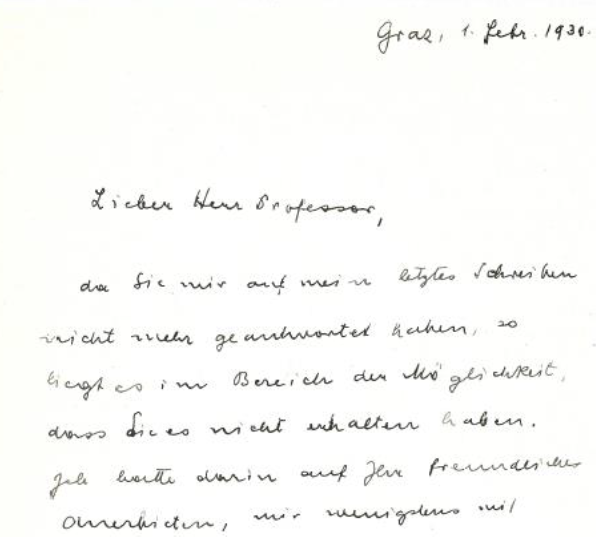 Graz, 1. Febr. 1930.
Lieber Herr Professor,
da Sie mir auf mein letztes Schreiben
nicht mehr geantwortet haben, so
liegt es im Bereich der Möglichkeit,
dass Sie es nicht erhalten haben.
Ich hatte darin auf Ihr freundliches
Anerbieten, mir wenigstens mit